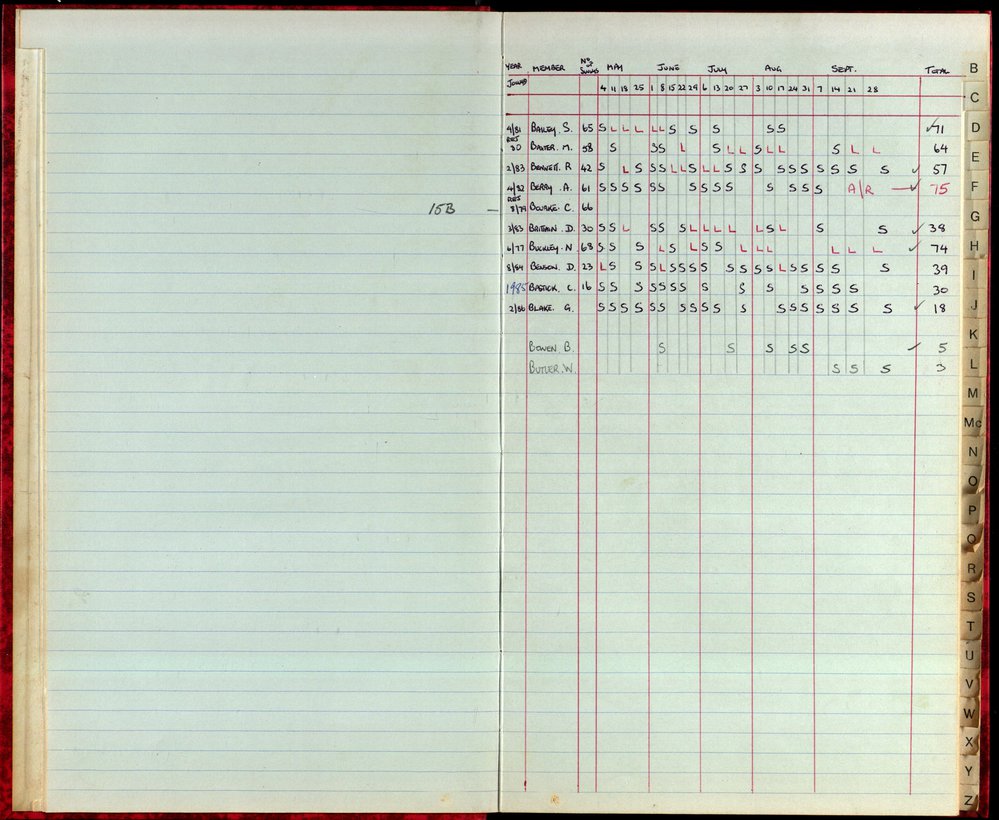 YEAR JOINED MEMBER No of SWIMS MAY JUNE JULY AUG SEPT. TOTAL
4 11 18 25 1 8 15 22 29 6 13 20 27 3 10 17 24 31 7 14 21 28
9/81 BAILEY. S. 65 S L L L L L S S S S S ✓ 71
RET 80 BAXTER. M. 58 S S S L S L L S L L S L L 64
2/83 BENNETT. R 42 S L S S S L L S L L S S S S S S S S S S S ✓ 57
4/82 BERRY. A. 61 S S S S S S S S S S S S S S S A/R ✓ 75
15B — RET 8/79 BOURKE. C. 66
3/83 BRITAIN. D. 30 S S L S S S L L L L L S L S S ✓ 38
6/77 BUCKLEY. N 68 S S S L S L S S L L L L L L ✓ 74
8/84 BENSON. D. 23 L S S S L S S S S S S S S S L S S S S S 39
1985 BASTICK. C. 16 S S S S S S S S S S S S S S 30
2/86 BLAKE. G. S S S S S S S S S S S S S S S S S S ✓ 18
BOWEN B. S S S S S ✓ 5
BUTLER. W. S S S 3
B
C
D
E
F
G
H
I
J
K
L
M
Mc
N
O
P
Q
R
S
T
U
V
W
X
Y
Z